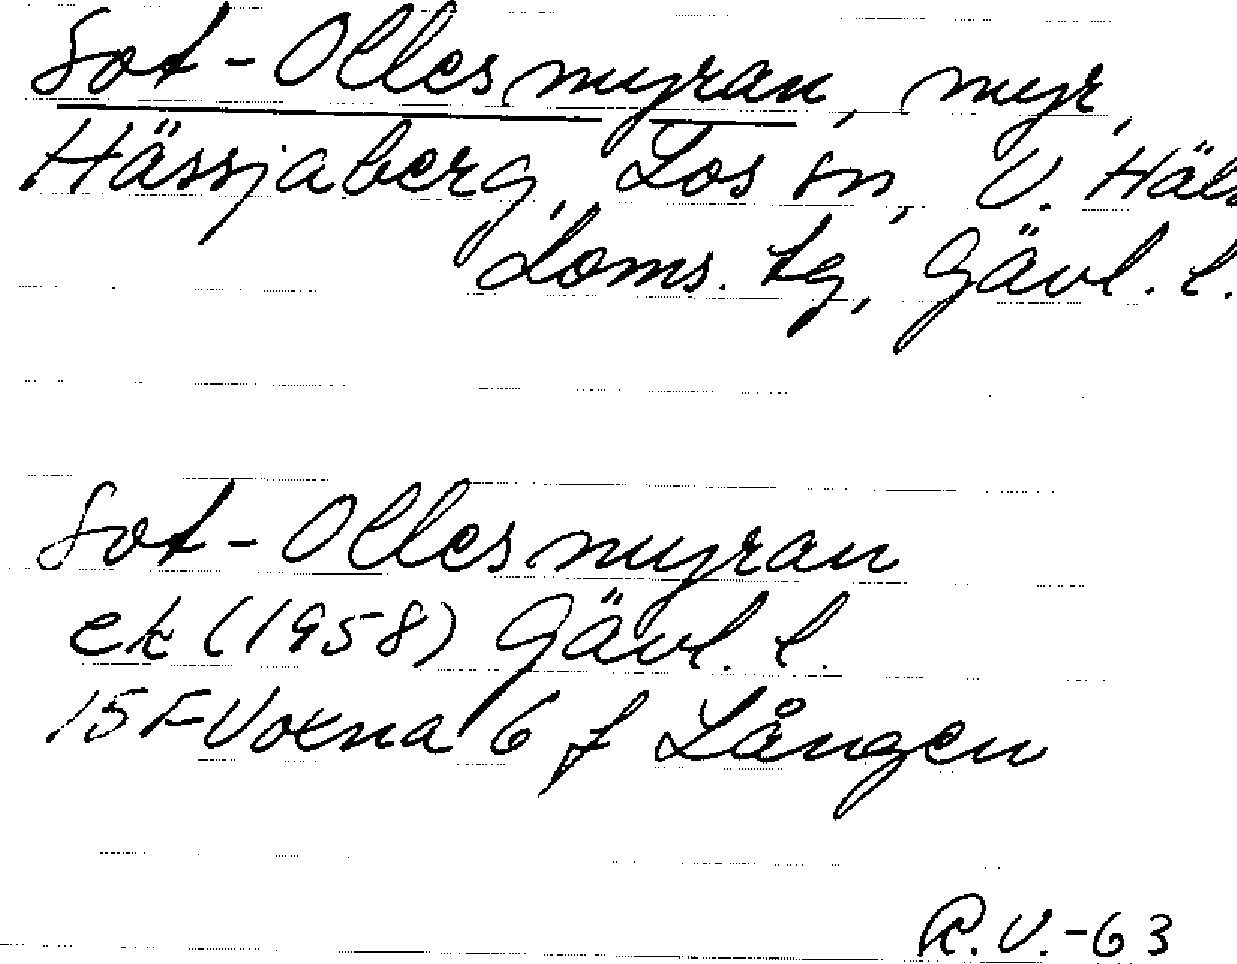 Sot-Ollesmyran, myr,
Hässjaberg, Los sn, V. Häls
Doms. tg, Gävl. l.
Sot-Ollesmyran
ek (1958) Gävl. l.
15F Voxna 6 f Lången
R.V.-63